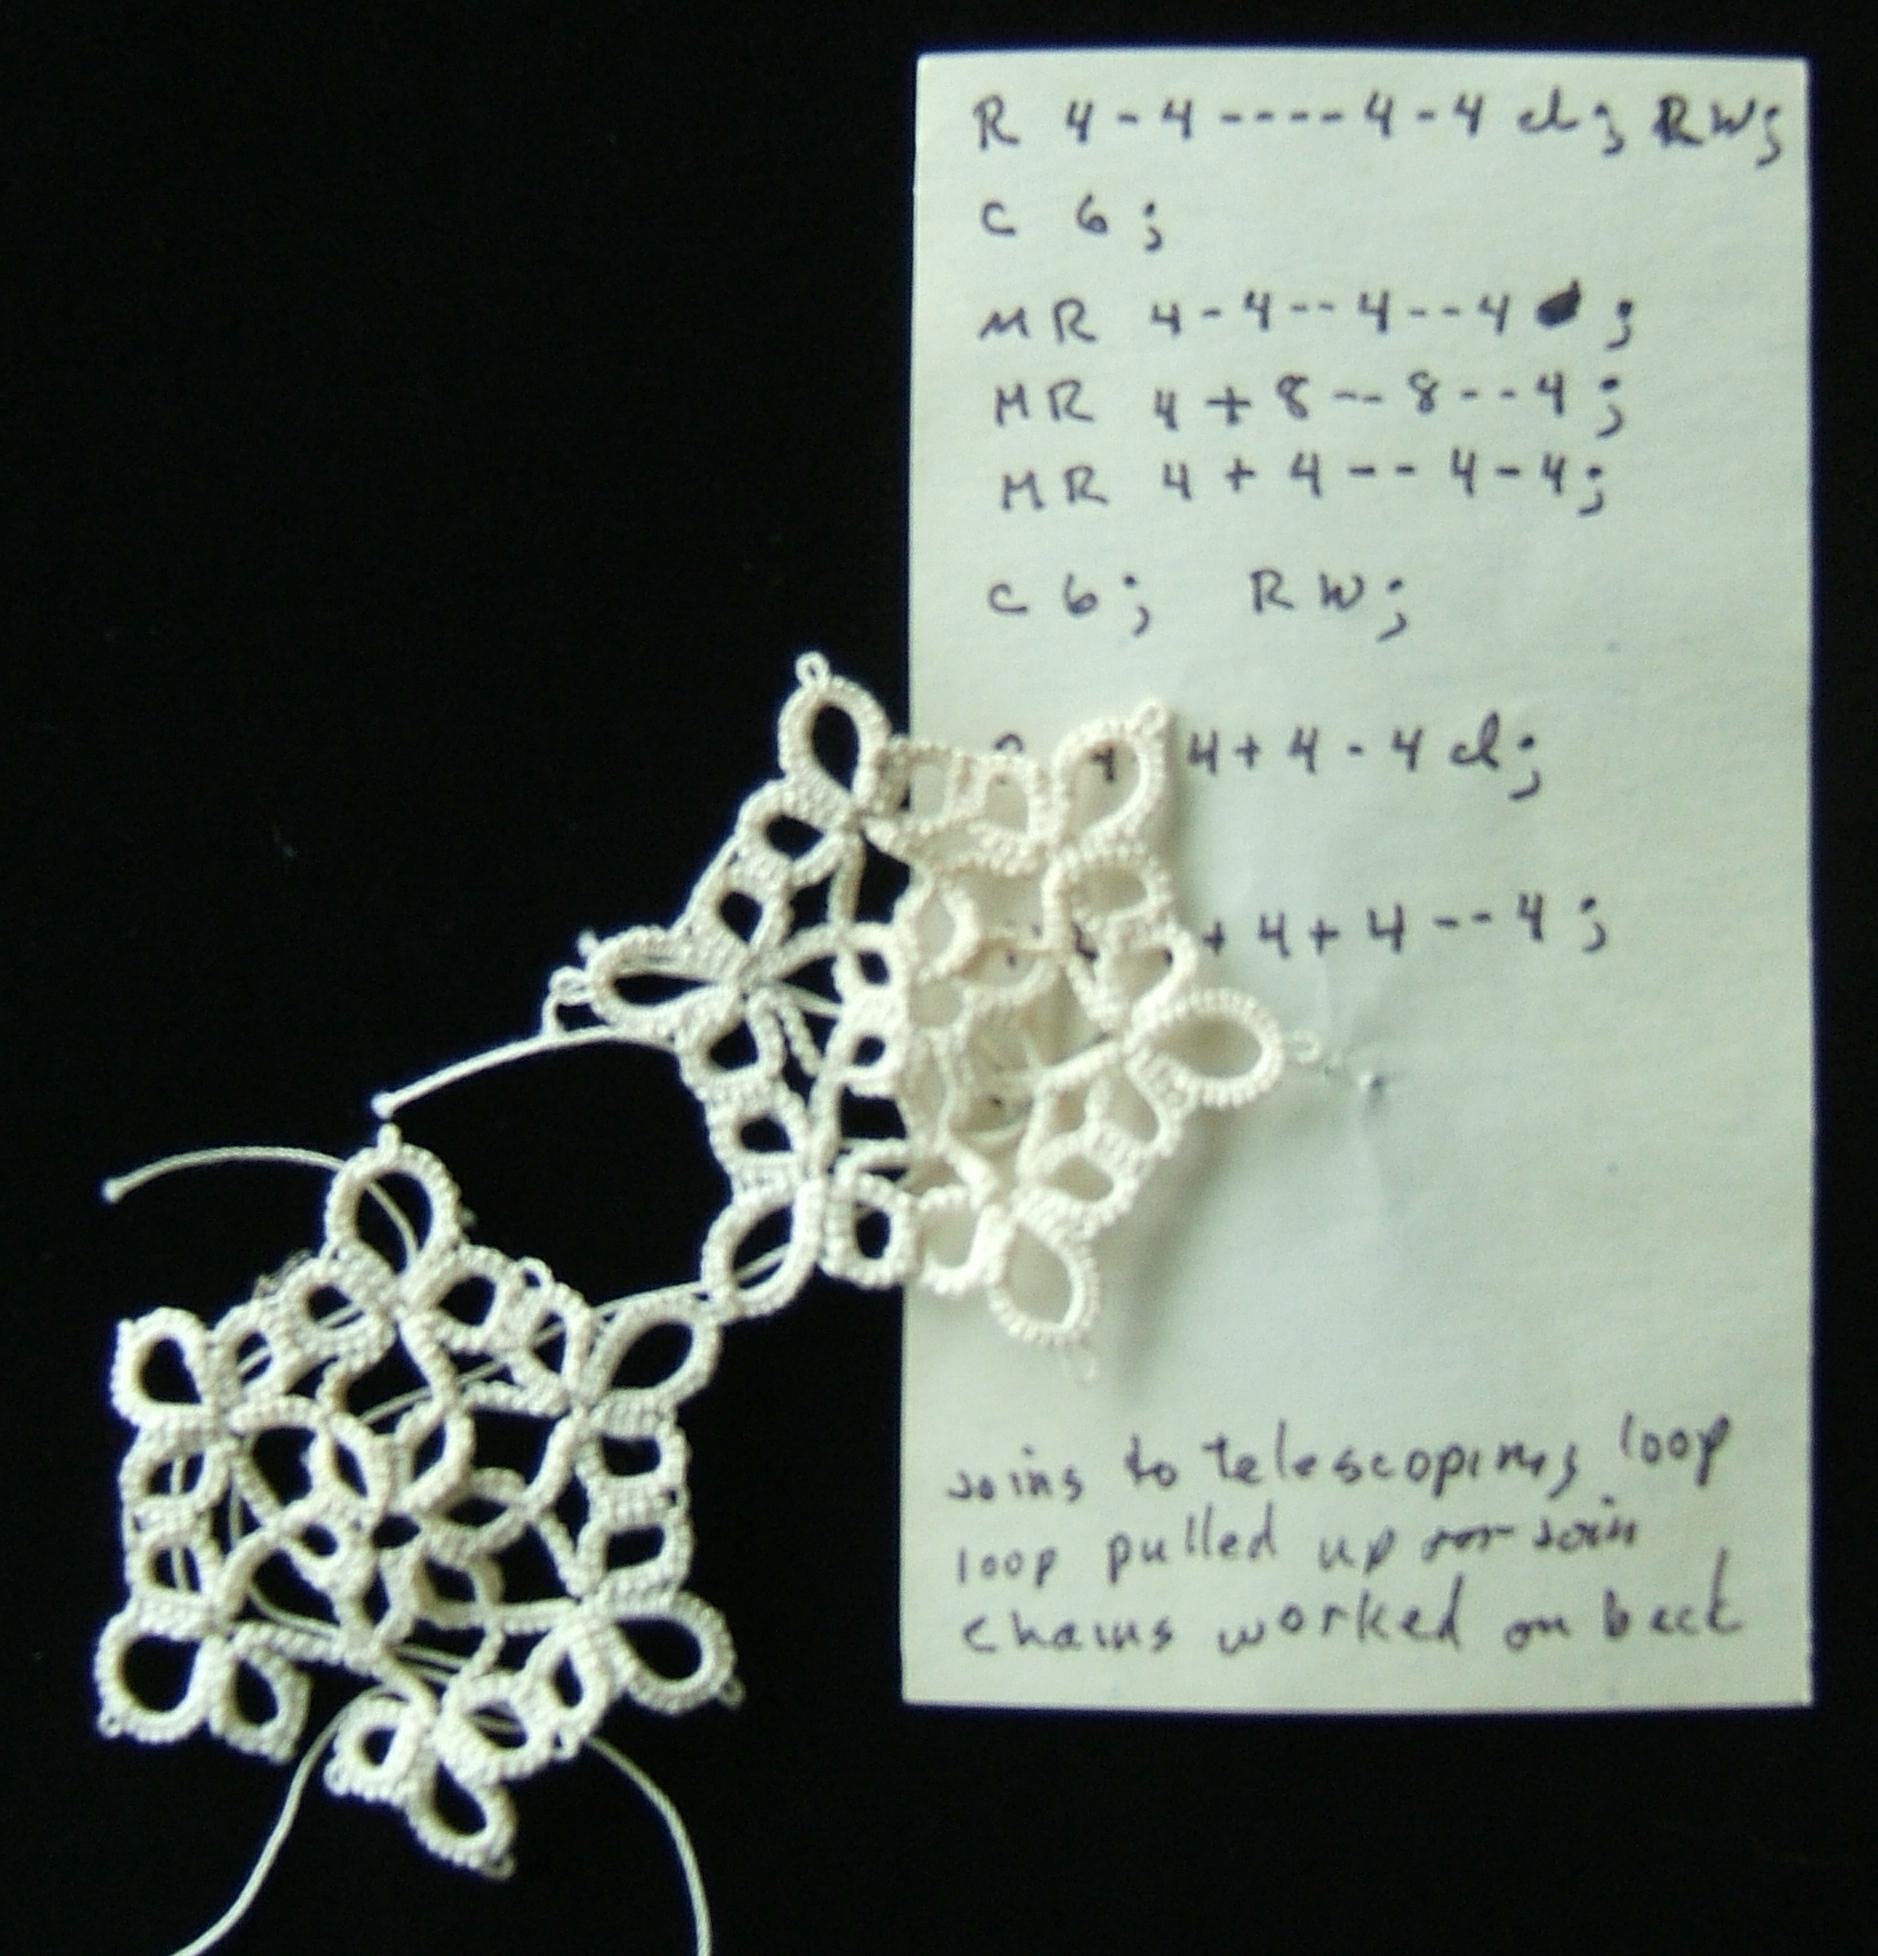 R 4-4----4-4 cl; RW;
C 6;
MR 4-4--4--4 ;
MR 4+8--8--4;
MR 4+4--4-4;
C 6; RW;
4+4-4 cl;
+4+4--4;
joins to telescoping loop
loop pulled up for join
chains worked on back